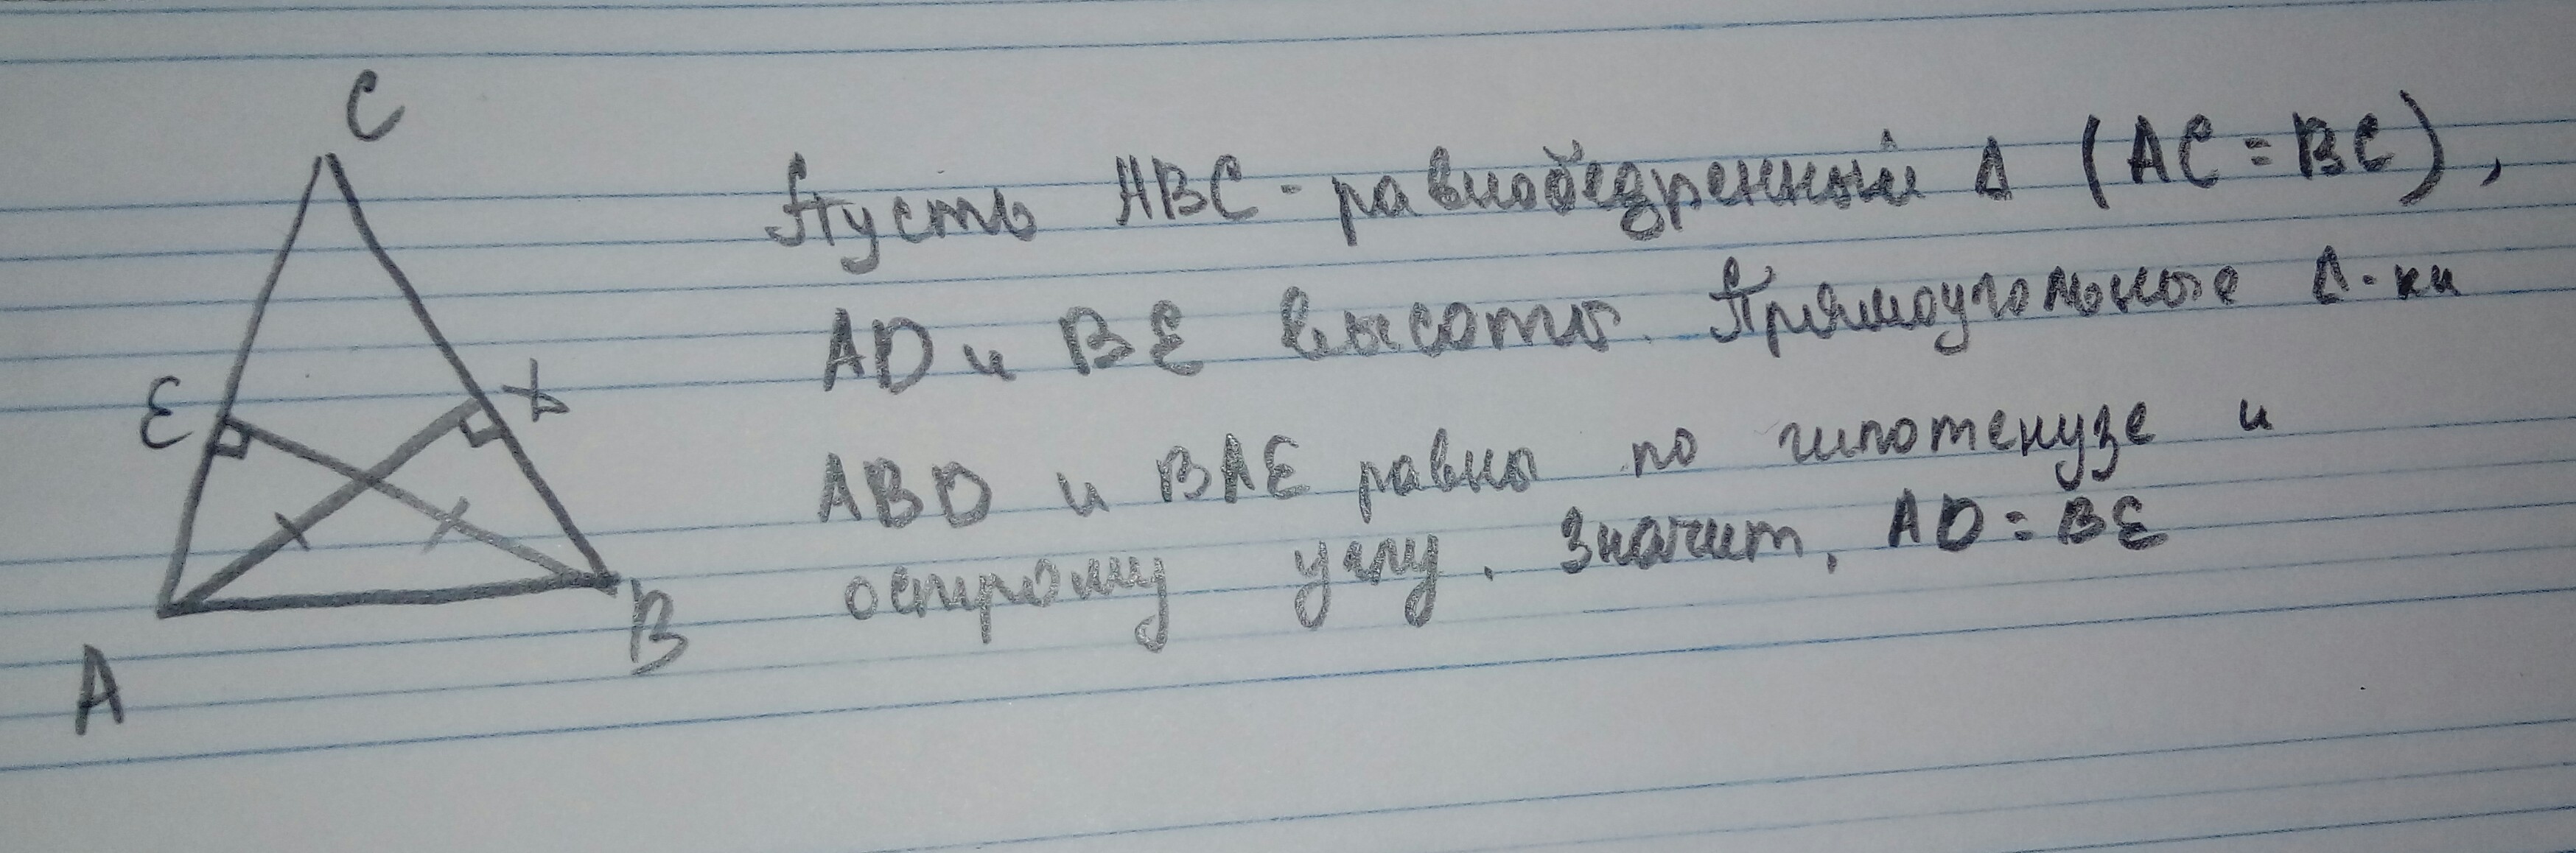 C
Пусть ABC - равнобедренный Δ (AC = BC),
AD и BE высоты. Прямоугольные Δ-ки
E
ABD и BAE равны по гипотенузе и
острому углу. Значит, AD = BE
B
A